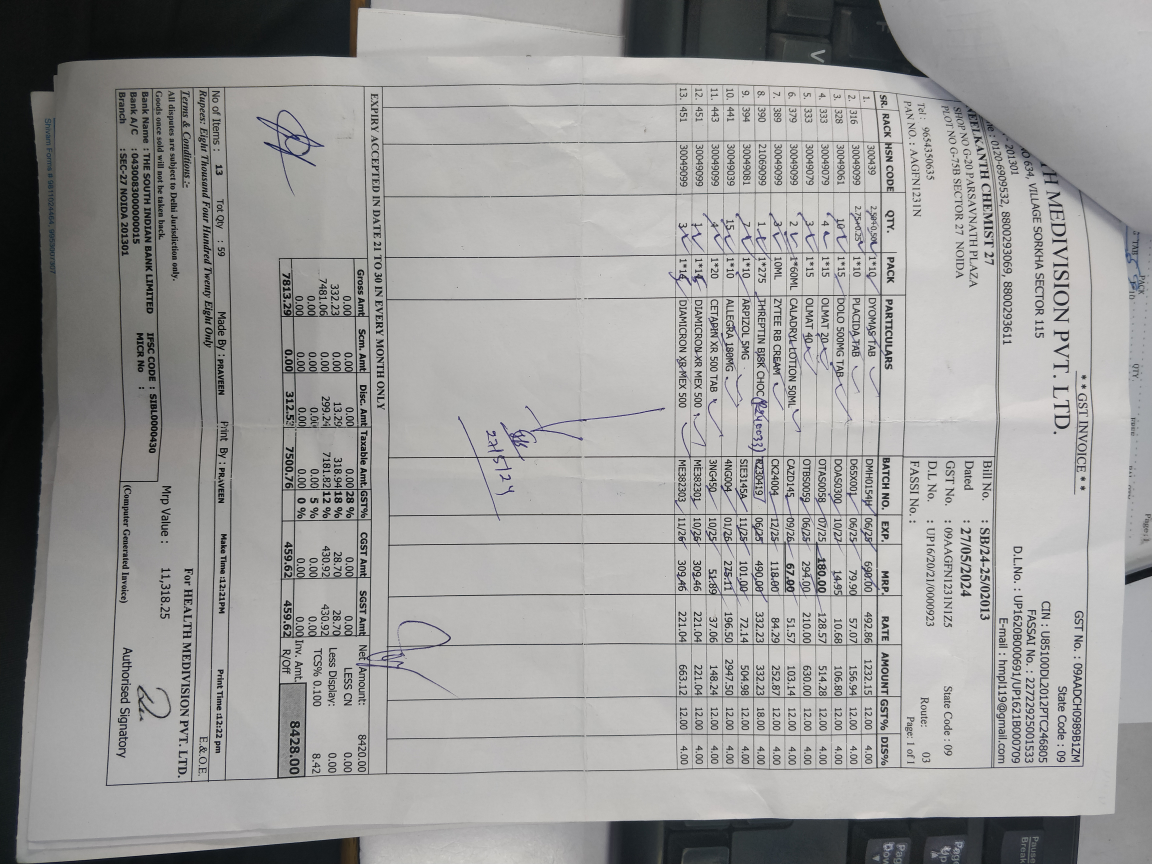 ** GST INVOICE **
GST No. : 09AADCH0989B1ZM
State Code : 09
CIN : U85100DL2012PTC246805
FASSAI No. : 22722925001533
D.L.No. : UP1620B000691/UP1621B000709
E-mail : hmpl119@gmail.com
MEDIVISION PVT. LTD.
634, VILLAGE SORKHA SECTOR 115
201301
0120-6909532, 8800293069, 8800293611
CHEMIST 27
SHOP NO G-20 PARSAVNATH PLAZA
PLOT NO G-75B SECTOR 27 NOIDA
Tel : 9654350635
PAN NO. : AAGFN1231N
Bill No. : SB/24-25/02013
Dated : 27/05/2024
GST No. : 09AAGFN1231N1Z5 State Code : 09
D.L. No. : UP16/20/21/0000923 Route: 03
FASSI No. : Page: 1 of 1
SR. RACK HSN CODE QTY. PACK PARTICULARS BATCH NO. EXP. MRP. RATE AMOUNT GST% DIS%
1. 300439 1*10 DYOMAS TAB DMH0154H 06/25 690.00 492.86 1232.15 12.00 4.00
2. 316 30049099 2.75+0.25 1*10 PLACIDA TAB D6SX001 06/25 79.90 57.07 156.94 12.00 4.00
3. 328 30049061 10 1*15 DOLO 500MG TAB DOAS0300 10/27 14.95 10.68 106.80 12.00 4.00
4. 333 30049079 4 1*15 OLMAT 20 OTAS0058 07/25 180.00 128.57 514.28 12.00 4.00
5. 333 30049079 3 1*15 OLMAT 40 OTBS0059 06/25 294.00 210.00 630.00 12.00 4.00
6. 379 30049099 2 1*60ML CALADRYL LOTION 50ML CAZD145 09/26 67.00 51.57 103.14 12.00 4.00
7. 389 30049099 3 10ML ZYTEE RB CREAM CK24004 12/25 118.00 84.29 252.87 12.00 4.00
8. 390 21069099 1 1*275 THREPTIN BISK CHOC R230419 06/25 490.00 332.23 332.23 18.00 4.00
9. 394 30049081 7 1*10 ARPIZOL 5MG SIE3145A 11/25 101.00 72.14 504.98 12.00 4.00
10. 441 30049039 15 1*10 ALLEGRA 180MG 4NG004 01/26 275.11 196.50 2947.50 12.00 4.00
11. 443 30049099 4 1*20 CETAPIN XR 500 TAB 3NG450 10/25 51.89 37.06 148.24 12.00 4.00
12. 451 30049099 1 DIAMICRON XR MEX 500 ME382301 10/26 309.46 221.04 221.04 12.00 4.00
13. 451 30049099 3 1*14 DIAMICRON XR MEX 500 ME382303 11/26 309.46 221.04 663.12 12.00 4.00
27/5/24
EXPIRY ACCEPTED IN DATE 21 TO 30 IN EVERY MONTH ONLY
Gross Amt Scm. Amt Disc. Amt Taxable Amt. GST% CGST Amt SGST Amt
0.00 0.00 0.00 0.00 28 % 0.00 0.00
332.23 0.00 13.29 318.94 18 % 28.70 28.70
7481.06 0.00 299.24 7181.82 12 % 430.92 430.92
0.00 0.00 0.00 0.00 5 % 0.00 0.00
0.00 0.00 0.00 0.00 0 % 0.00 0.00
7813.29 0.00 312.53 7500.76 459.62 459.62
Net Amount: 8420.00
LESS CN 0.00
Less Display: 0.00
TCS% 0.100 8.42
R/Off
Inv. Amt. 8428.00
No of Items : 13 Tot Qty : 59 Made By : PRAVEEN Print By : PRAVEEN Make Time :12:21PM Print Time :12:22 pm
Rupees: Eight Thousand Four Hundred Twenty Eight Only E.& O.E.
Terms & Conditions :-
All disputes are subject to Delhi Jurisdiction only.
Goods once sold will not be taken back.
Bank Name : THE SOUTH INDIAN BANK LIMITED IFSC CODE : SIBL0000430
Bank A/C : 0430083000000015 MICR No :
Branch : SEC-27 NOIDA 201301
Mrp Value : 11,318.25
For HEALTH MEDIVISION PVT. LTD.
(Computer Generated Invoice)
Authorised Signatory